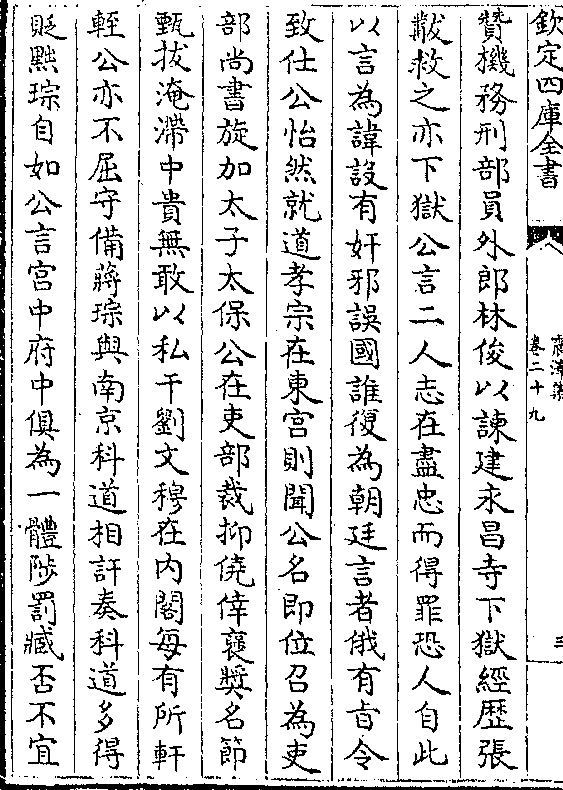 欽定四庫全書
卷二十九
三
贊機務刑部員外郎林俊以諫建永昌寺下獄經歷張
黻救之亦下獄公言二人志在盡忠而得罪恐人自此
以言為諱設有奸邪誤國誰復為朝廷言者俄有旨令
致仕公怡然就道孝宗在東宮則聞公名即位召為吏
部尚書旋加太子太保公在吏部裁抑僥倖褒奬名節
甄拔淹滯中貴無敢以私干劉文穆在内閣每有所軒
輊公亦不屈守備蔣琮與南京科道相訐奏科道多得
貶黜琮自如公言宫中府中俱為一體陟罰臧否不宜